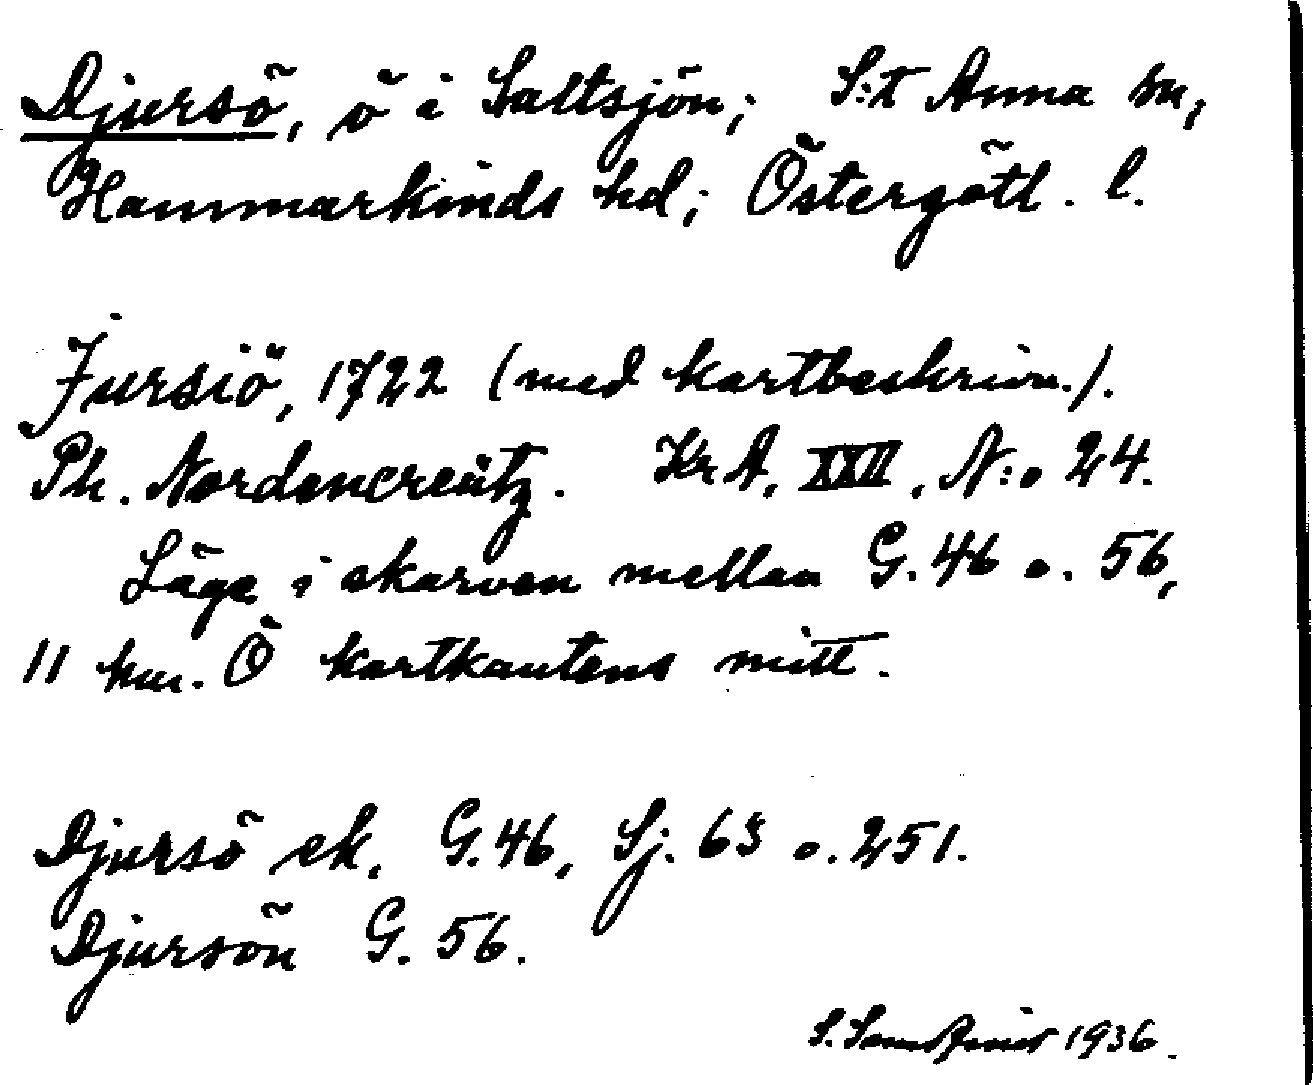 Djursö, ö i Saltsjön; S:t Anna sn,
Hammarkinds hd; Östergötl. l.
Jursiö, 1722 (med kartbeskrivn.).
Ph. Nordencreütz. KrA, XXII, N:o 24.
Läge i skarven mellan G. 46 o. 56,
11 km. Ö kartkantens mitt.
Djursö ek. G. 46, Sj. 63 o. 251.
Djursön G. 56.
S. 1936.